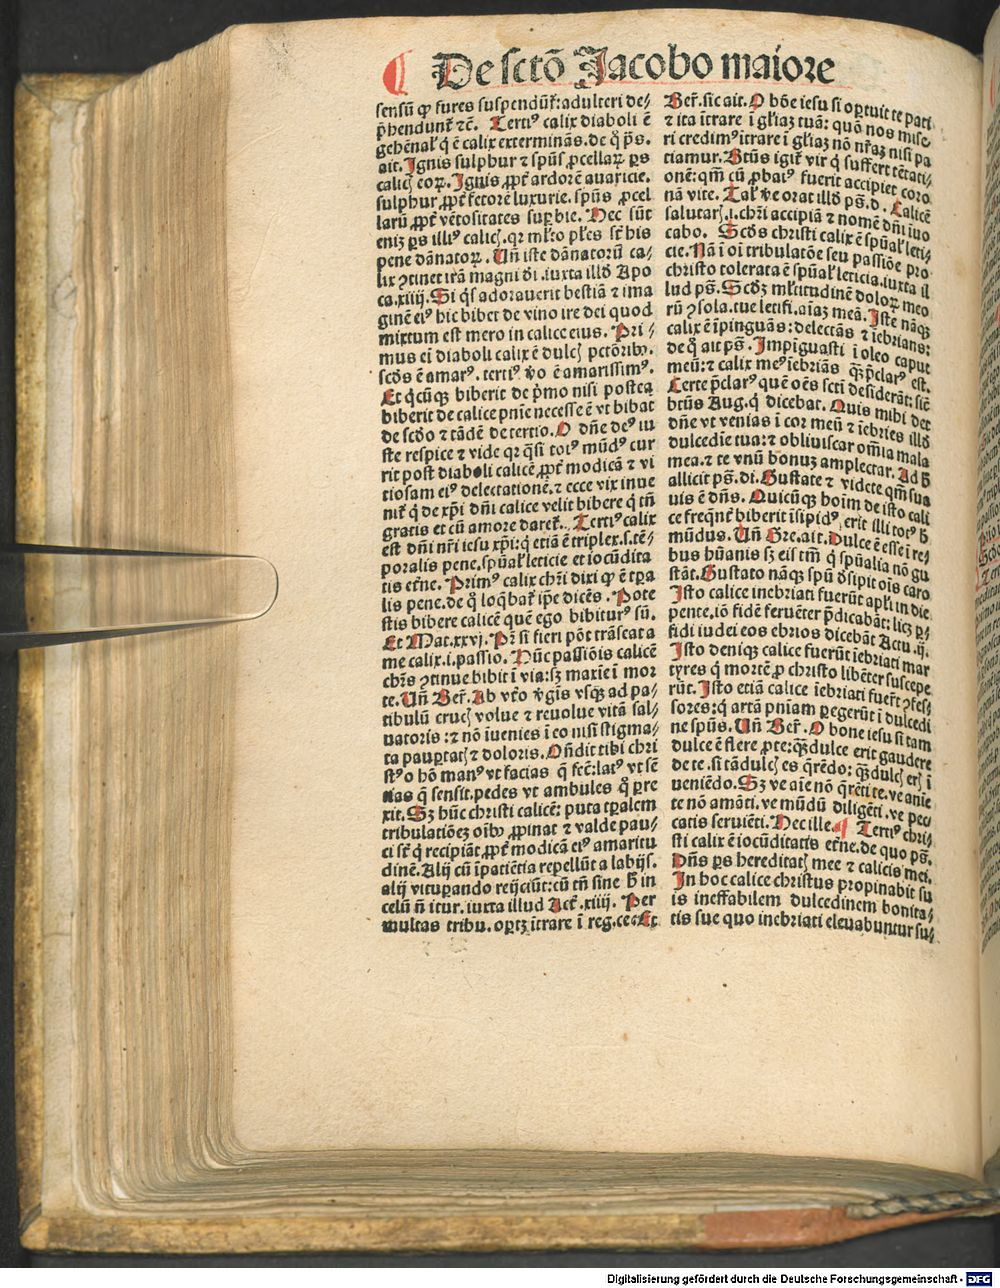 ¶ De sctō Jacobo maiore
sensū ꝙ fures suspendūt̄: adulteri de⸗
p̄hendunt̄ ⁊c̄. Tertiꝰ calix diaboli ē
gehēnał q̄ ē calix exterminās. de q̊ p̄s.
ait. Ignis sulphur ⁊ spūs ꝓcellaꝝ ꝑs
calicꝭ eoꝝ. Ignis ꝓpt̄ ardorē auaricie.
sulphur ꝓpt̄ fetorē luxurie. spūs ꝓcel
larū ꝓpt̄ vētositates suꝑbie. Hec sūt
eniꝫ ꝑs illiꝰ calicꝭ. qꝛ ml̄to pl̄es st̄ his
pene dānatoꝝ. Vn̄ iste dānatorū ca⸗
lix ꝯtinet irā magni di̅. iuxta illd̄ Apo
ca.xiiij. Si q̄s adorauerit bestiā ⁊ ima
ginē eiꝰ hic bibet de vino ire dei quod
mixtum est mero in calice eius. Pri⸗
mus em̄ diaboli calix ē dulcꝭ pctōribꝰ.
scd̄s ē amarꝰ. tertiꝰ v̊o ē amarissimꝰ.
Et q̄cūqꝫ biberit de p̄mo nisi postea
biberit de calice pn̄ie necesse ē vt bibat
de scd̄o ⁊ tādē de tertio. O dn̄e deꝰ iu
ste respice ⁊ vide qꝛ q̄si totꝰ mūdꝰ cur
rit post diaboli calicē ꝓpt̄ modicā ⁊ vi
tiosam eiꝰ delectationē. ⁊ ecce vix inue
nit̄ q̇ de xp̄i dn̄i calice velit bibere q̄ tn̄
gratis et cū amore daret̄. Tertiꝰ calix
est dn̄i nr̄i iesu xp̄i: q̇ etiā ē triplex. s. tē⸗
poralis pene. spūał leticie et iocūdita
tis et̄ne. Primꝰ calix chr̄i dixi ꝙ ē tꝑa
lis pene. de q̊ loq̄bat̄ ip̄e dicēs. Pote
stis bibere calicē quē ego bibiturꝰ sū.
Et Mat.xxvj. Pr̄ si fieri pōt trāseat a
me calix. i. passio. Hūc passiōis calicē
chr̄s ꝯtinue bibit i via: sꝫ maxie i mor
te. Vn̄ Ber̄. Ab vt̄ro v̄gīs vsqꝫ ad pa⸗
tibulū crucꝭ volue ⁊ reuolue vitā sal⸗
uatoris: ⁊ nō iuenies i eo nisi stigma⸗
ta pauꝑtatꝭ ⁊ doloris. On̄dit tibi chri
stꝰ o hō manꝰ vt facias q̄ fec̄: latꝰ vt sē
tias q̄ sensit. pedes vt ambules q̊ ꝑre
xit. Sꝫ hūc christi calicē: puta tꝑalem
tribulatiōeꝫ oībꝰ ꝓpinat ⁊ valde pau⸗
ci st̄ q̇ recipiāt ꝓpt̄ modicā eiꝰ amaritu
dinē. Alij cū ipatiētia repellūt a labijs.
alij vituꝑando reijciūt: cū tn̄ sine h̄ in
celū n̄ itur. iuxta illud Act̄.xiiij. Per
multas tribu. oꝑtꝫ itrare ī reg. ce. Et
Ber̄. sic ait. O bōe iesu si oꝑtuit te pati
⁊ ita itrare ī gl̄iaꝫ tuā: quō nos mise⸗
ri credimꝰ itrare ī gl̄iaꝫ nō nr̄aꝫ nisi pa
tiamur. Btūs igit̄ vir q̇ suffert tētati⸗
onē: qm̄ cū ꝓbatꝰ fuerit accipiet coro
nā vite. Tał v̊e orat illd̄ ps̄. d. Calicē
salutarꝭ. i. chr̄i accipiā ⁊ nomē dn̄i iuo
cabo. Scd̄s christi calix ē spūał leti⸗
cie. Nā ī oī tribulatōe seu passiōe pro
christo tolerata ē spūał leticia. iuxta il
lud ps̄. Scd̄ꝫ ml̄titudinē doloꝝ meo
rū ꝯsola. tue letifi. aīaꝫ meā. Iste nāqꝫ
calix ē īpinguās: delectās ⁊ iebrians:
de q̊ ait ps̄. Impīguasti ī oleo caput
meū: ⁊ calix meꝰ iebriās qꝫ p̄clarꝰ est.
Certe p̄clarꝰ quē oēs sctī desiderāt: sic̄
btūs Aug. q̇ dicebat. Quis mihi det
dn̄e vt venias ī cor meū ⁊ iebries illd̄
dulcedīe tua: ⁊ obliuiscar om̄ia mala
mea. ⁊ te vnū bonuꝫ amplectar. Ad h̄
allicit ps̄. di. Gustate ⁊ videte qm̄ sua
uis ē dn̄s. Quicūqꝫ hoīm de isto cali
ce freq̄nt̄ biberit isipidꝰ erit illi totꝰ h̄
mūdus. Vn̄ Gre. ait. Dulce ē esse ī re⸗
bus hūanis sꝫ eis tm̄ q̇ spūalia nō gu
stāt. Gustato nāqꝫ spū d̄sipit oīs caro
Isto calice inebriati fuerūt apl̄i in die
pente. iō fidē feruēter p̄dicabāt: licꝫ ꝑ⸗
fidi iudei eos ebrios dicebāt Actu.ij.
Isto deniqꝫ calice fuerūt iebriati mar
tyres q̇ mortē ꝓ christo libēter suscepe
rūt. Isto etiā calice iebriati fuer̄t ꝯfes⸗
sores: q̇ artā pn̄iam ꝑegerūt ī dulcedi
ne spūs. Vn̄ Ber̄. O bone iesu si tam
dulce ē flere ꝓ te: qꝫ dulce erit gaudere
de te. si tā dulcꝭ es q̄rēdo: qꝫ dulcꝭ erꝭ ī
ueniēdo. Sꝫ ve aīe nō q̄rēti te. ve anīe
te nō amāti. ve mūdū diligēti. ve pec
catis seruiēti. Hec ille. ¶ Tertiꝰ chri⸗
sti calix ē iocūditatis et̄ne. de quo ps̄.
Dn̄s ꝑs hereditatꝭ mee ⁊ calicis mei.
In hoc calice christus propinabit su
is ineffabilem dulcedinem bonita⸗
tis sue quo inebriati eleuabuntur su⸗
Digitalisierung gefördert durch die Deutsche Forschungsgemeinschaft - DFG